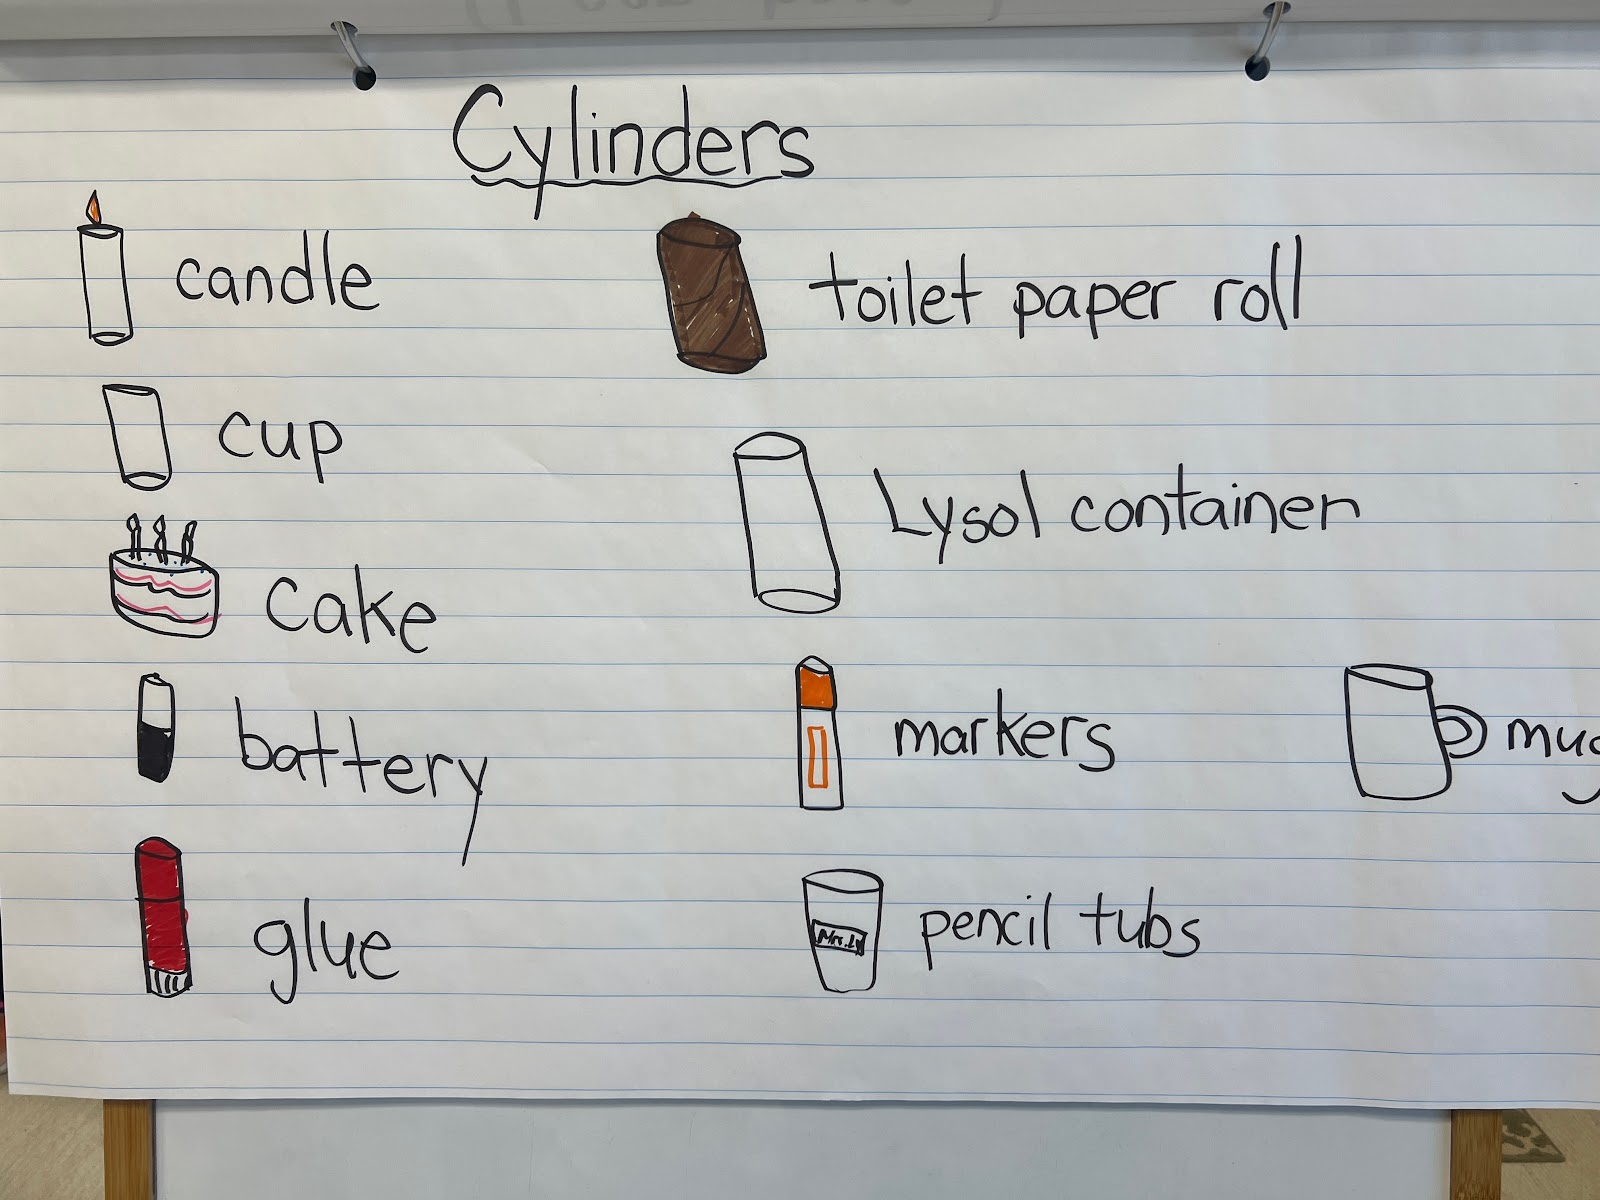 Cylinders
candle
toilet paper roll
cup
Lysol container
cake
battery
markers
mug
glue
pencil tubs